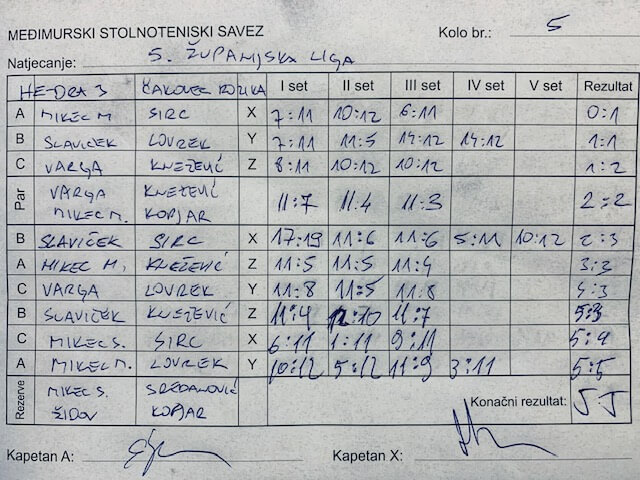 MEĐIMURSKI STOLNOTENISKI SAVEZ Kolo br.: 5
Natjecanje: 5. ŽUPANIJSKA LIGA
HETDRA 3 ČAKOVEC ROZIKA I set II set III set IV set V set Rezultat
A MIKEC M. SIRC X 7:11 10:12 6:11 0:1
B SLAVIČEK LOVREK Y 7:11 11:5 14:12 14:12 1:1
C VARGA KNEŽEVIĆ Z 8:11 10:12 10:12 1:2
Par VARGA KNEŽEVIĆ
MIKEC M. KOPJAR 11:7 11:4 11:3 2:2
B SLAVIČEK SIRC X 17:19 11:6 11:6 5:11 10:12 2:3
A MIKEC M. KNEŽEVIĆ Z 11:5 11:5 11:4 3:3
C VARGA LOVREK Y 11:8 11:5 11:8 4:3
B SLAVIČEK KNEŽEVIĆ Z 11:4 12:10 11:7 5:3
C MIKEC S. SIRC X 6:11 1:11 9:11 5:4
A MIKEC M. LOVREK Y 10:12 5:12 11:9 3:11 5:5
Rezerve MIKEC S. SREDANOVIĆ
ŽIDOV KOPJAR Konačni rezultat: 5 5
Kapetan A: Kapetan X: